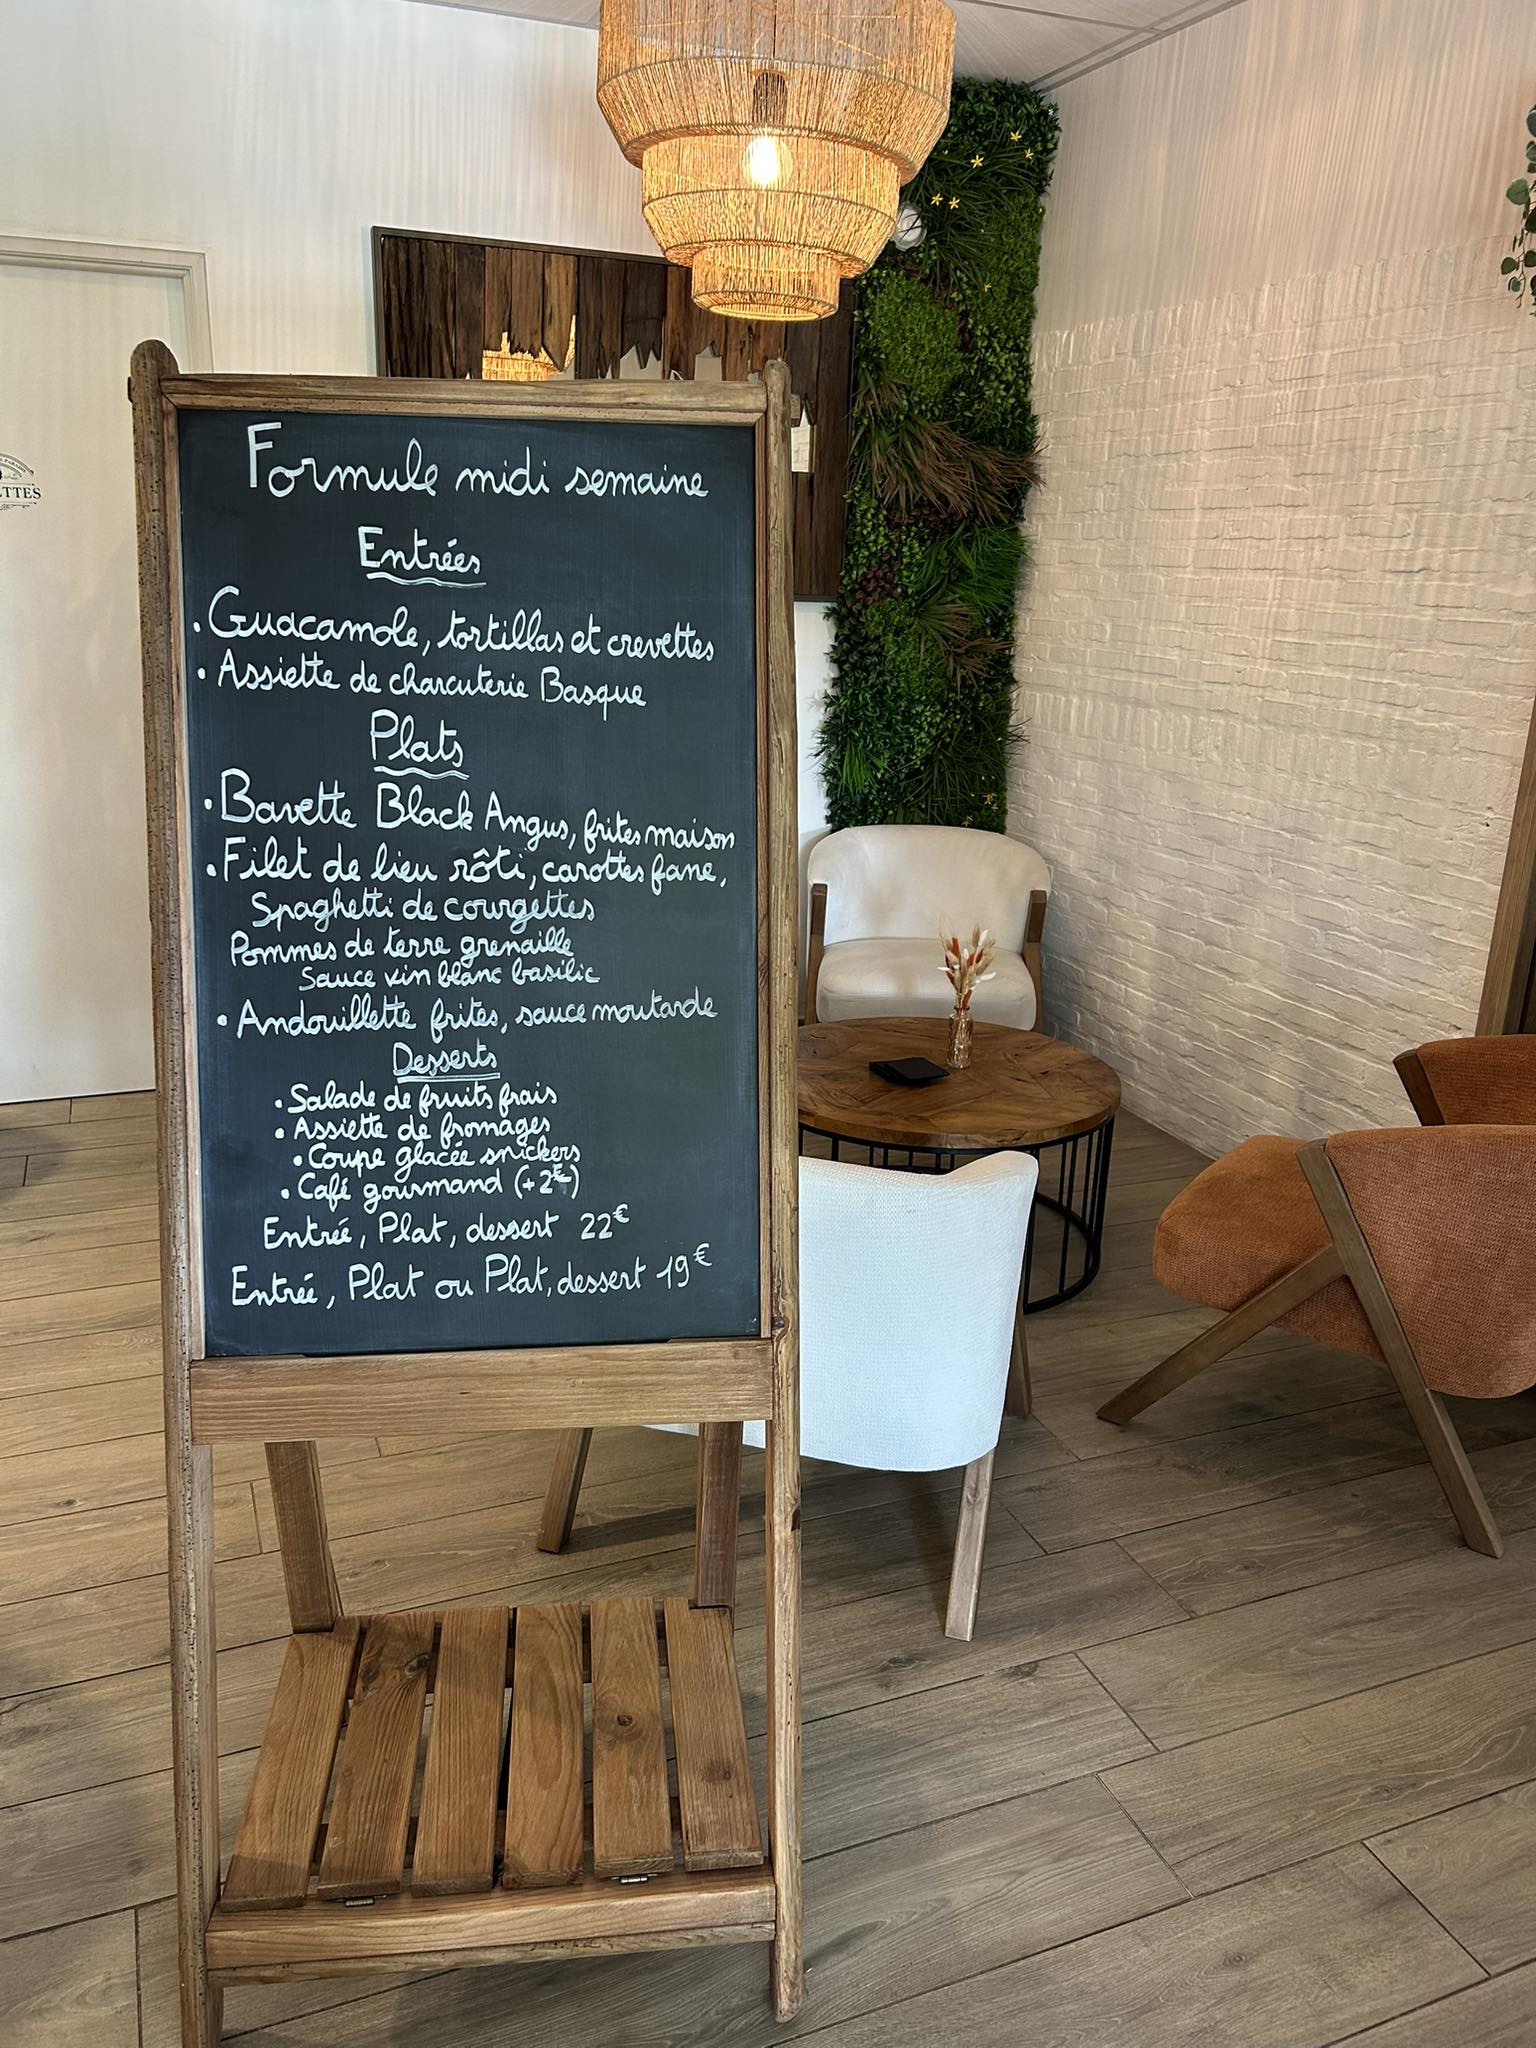 Formule midi semaine
Entrées
• Guacamole, tortillas et crevettes
• Assiette de charcuterie Basque
Plats
• Bavette Black Angus, frites maison
• Filet de lieu rôti, carottes fane,
Spaghetti de courgettes
Pommes de terre grenaille
Sauce vin blanc basilic
• Andouillette frites, sauce moutarde
Desserts
• Salade de fruits frais
• Assiette de fromages
• Coupe glacée snickers
• Café gourmand (+2€)
Entrée, Plat, dessert 22€
Entrée, Plat ou Plat, dessert 19€